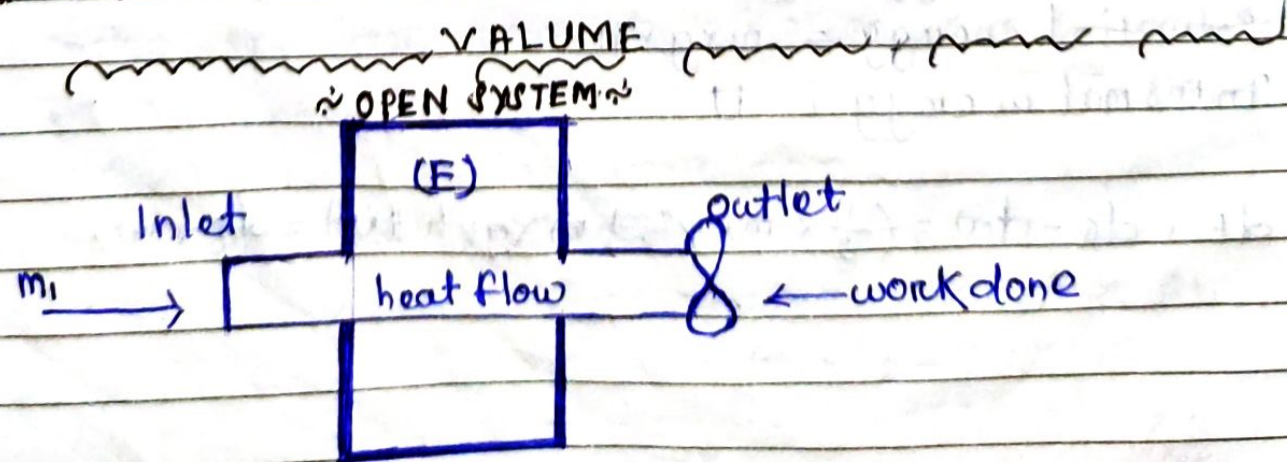 VALUME
~ OPEN SYSTEM ~
(E)
Inlet
outlet
m₁
heat flow
work done